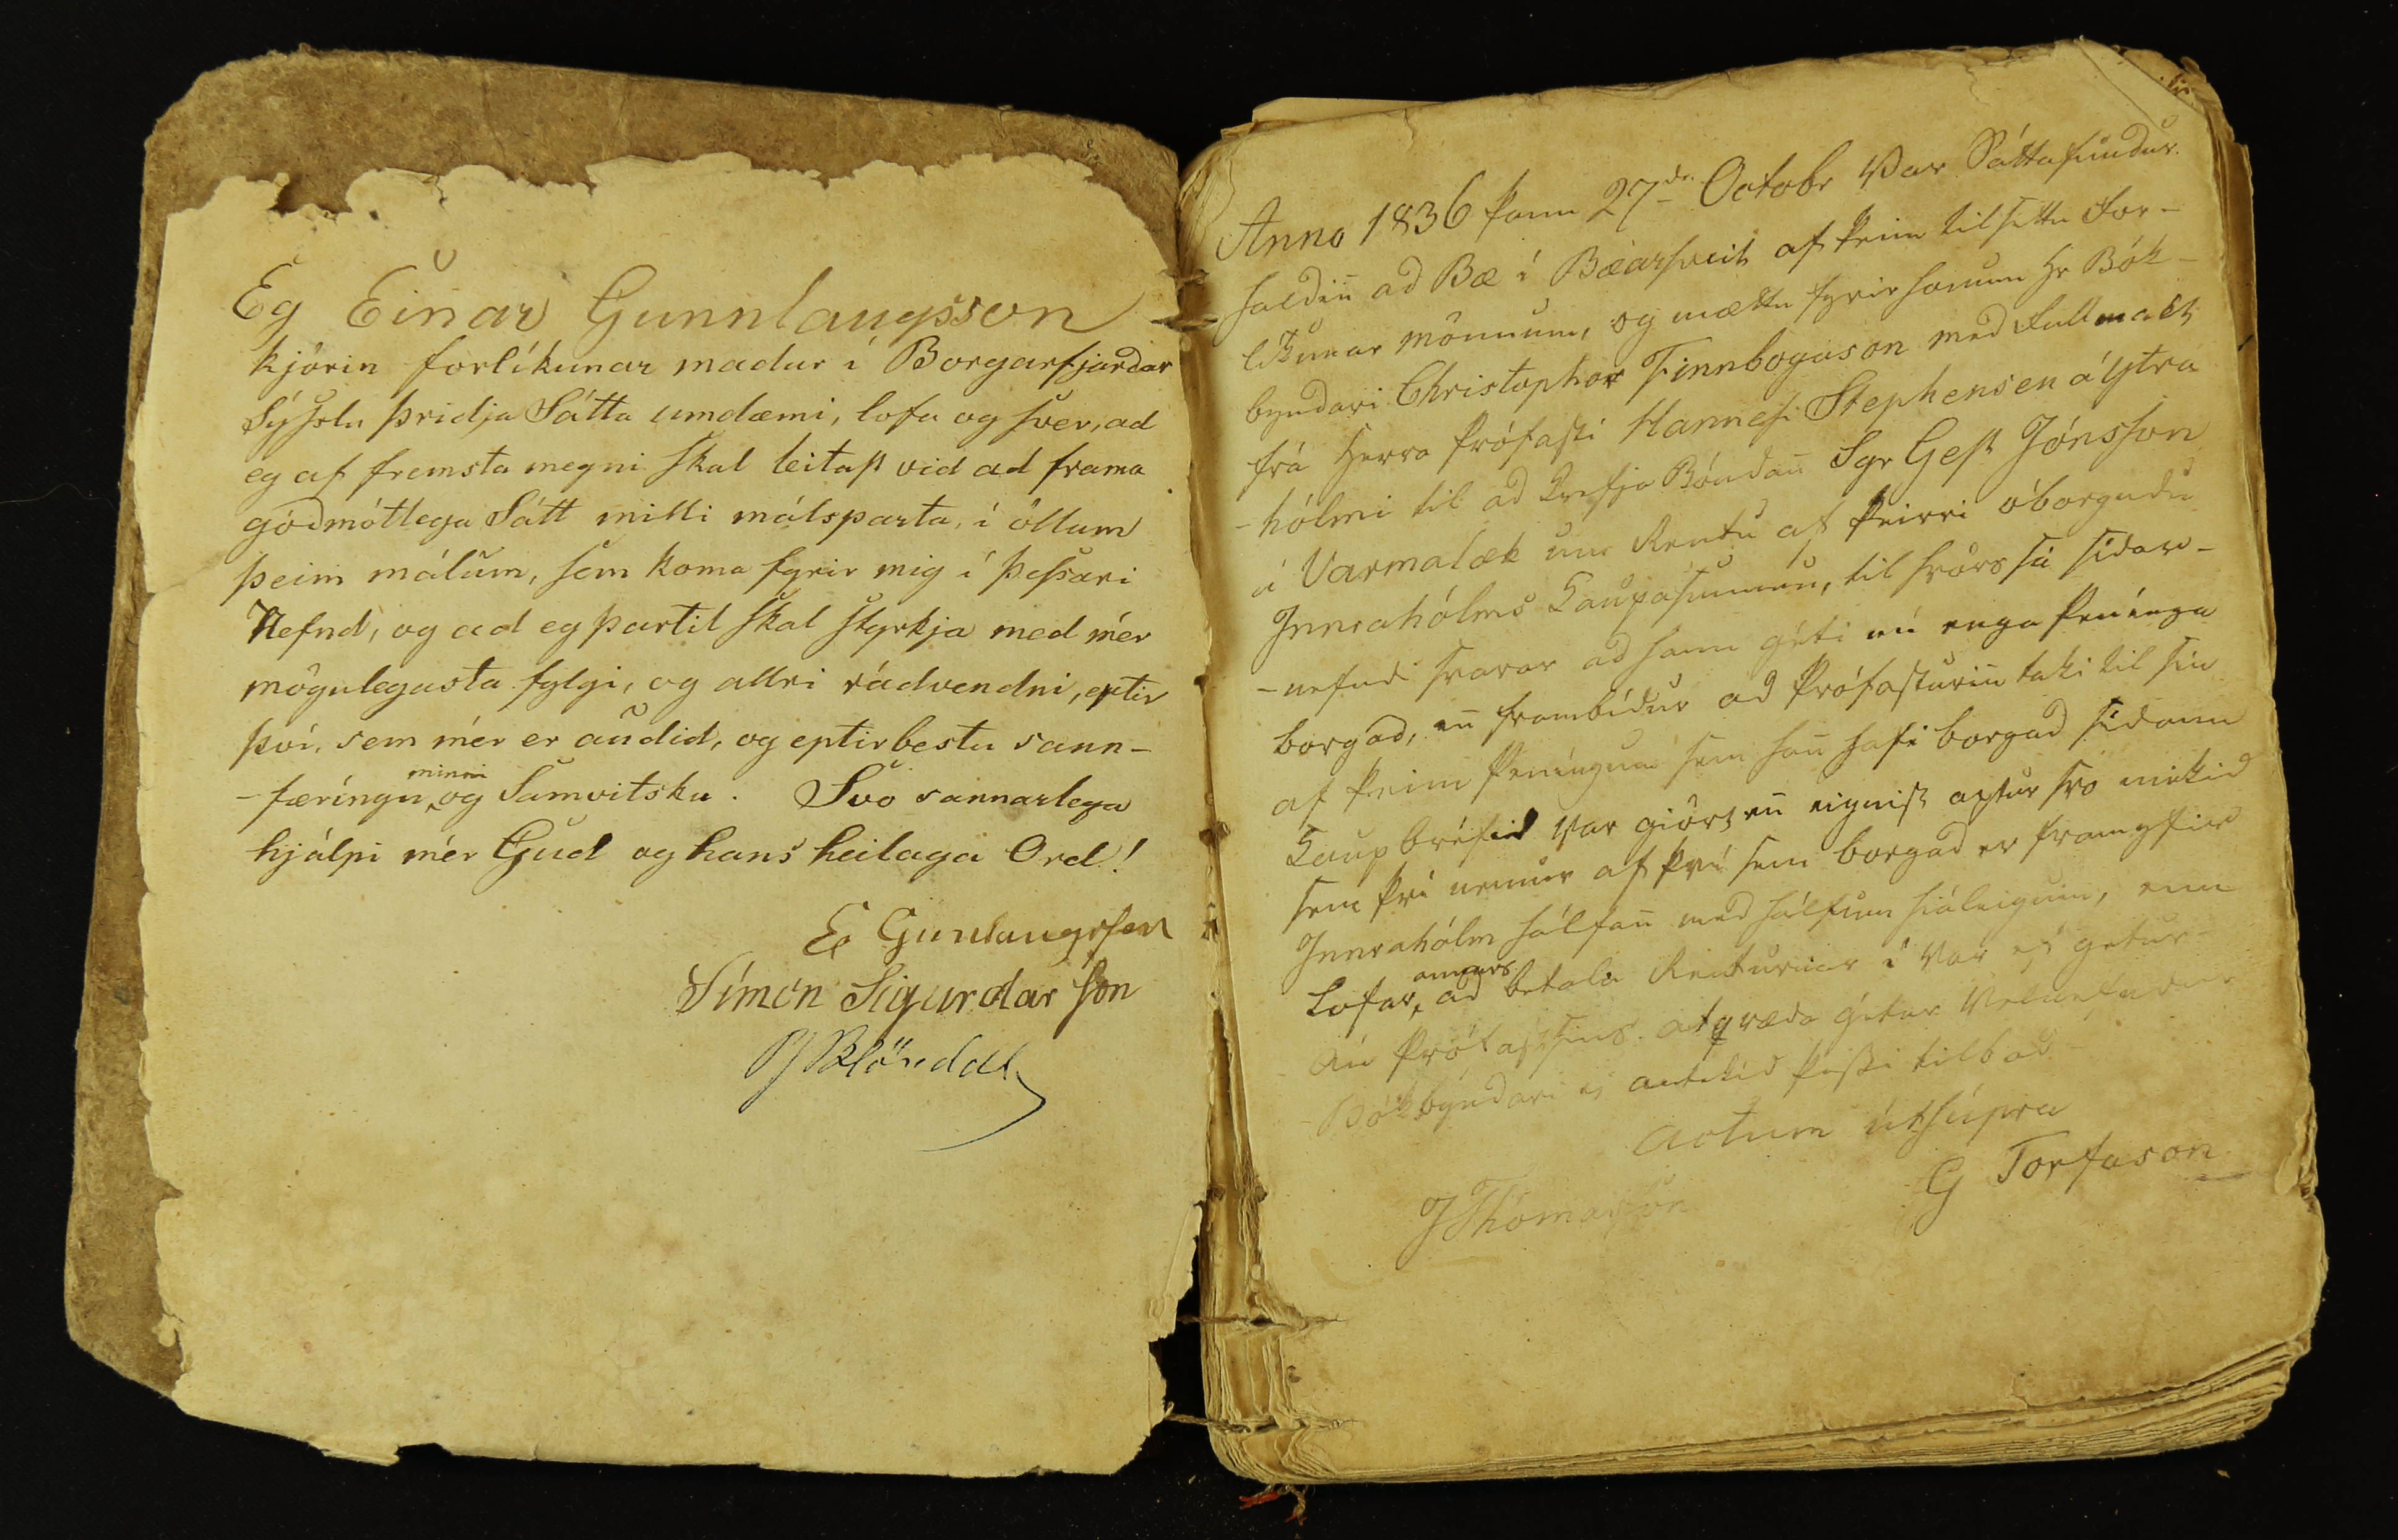 Eg Einar Gunnlaugsson
kjörin forlíkunar madur í Borgarfjardar
Sýslu þridja Sátta umdæmi, lofa og sver, ad
eg af fremsta megni skal leitast vid ad frama
gódmótlega Sátt milli málsparta, í öllum
þeim málum, sem koma fyrir mig í þessari
Nefnd, og ad eg þartil skal styrkja med mér
mögulegasta fylgi, og allri rádvendni, eptir
því, sem mér er audid, og eptir bestu sann-
-færíngu minni og Samvitsku. Svo sannarlega
hjálpi mér Gud og hans heilaga Ord!
E Gunlaugssen
Símon Sigurdar son
Blöndal
Anno 1836 þann 27de Octobr Var Sáttafundur
haldiñ ad Bæ í Bæarsveit af þeim tilsettu For-
líkunar mönnum, og mættu fyrir honum Hr Bók-
byndari Christophor Finnbogason med Fullmakt
frá Herra Prófasti Hannesi Stephensen á Ytra
-hólmi til ad krefja Bóndañ Sgr Gest Jónsson
á Varmalæk um Rentu af þeirri óborgudu
Innrahólms Kaupasummu, til hvörs sá sídar-
-nefndi svarar ad hann géti nú enga Penínga
borgad, eñ frambídur ad Prófasturiñ taki til sín
af þeim Peníngum sem hañ hafi borgad sídann
Kaupbréfid var giört eñ eignist aptur svo mikid
sem því nemur af því sem borgad er framyfir
Innrahólm hálfañ med hálfum hiáleigum, enn
Lofar, annars ad betala Renturnar í Vor ef getur
án Prófastsins atqvæda getur Velnefndur
Bókbyndari ej antekid þessi tilbod
Actum útsúpra
JThomasson
G Torfason